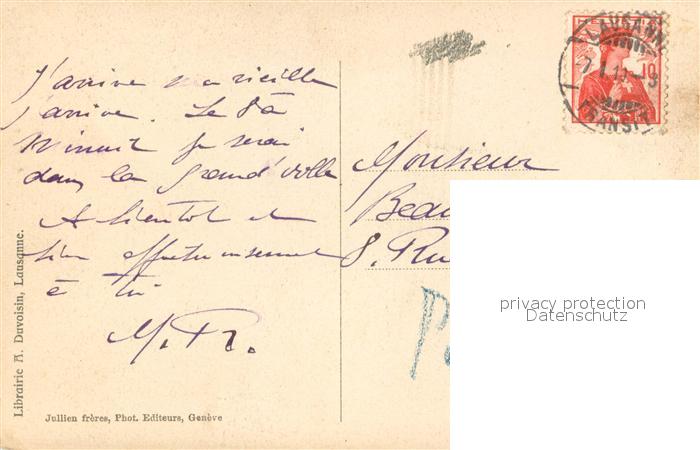 J'arrive ma vieille
j'arrive. Le 8 à
minuit je serai
dans la grand'ville
A bientôt et
bien affectueusement
à toi
M. Pr.
Monsieur
Beau
8. Ru
P
HELVETIA
10
LAUSANNE
TRANSIT
Librairie A. Duvoisin, Lausanne.
Jullien frères, Phot. Editeurs, Genève
privacy protection
Datenschutz